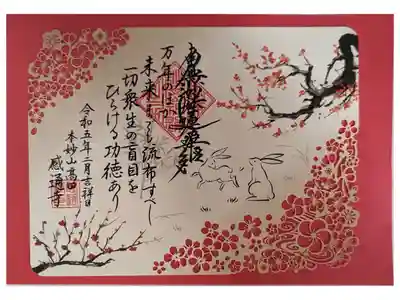 南無妙法蓮華経
万年のほか
未来までも流布すべし
一切衆生の盲目を
ひらける功徳あり
令和五年二月吉祥日
本妙山 高田
感通寺